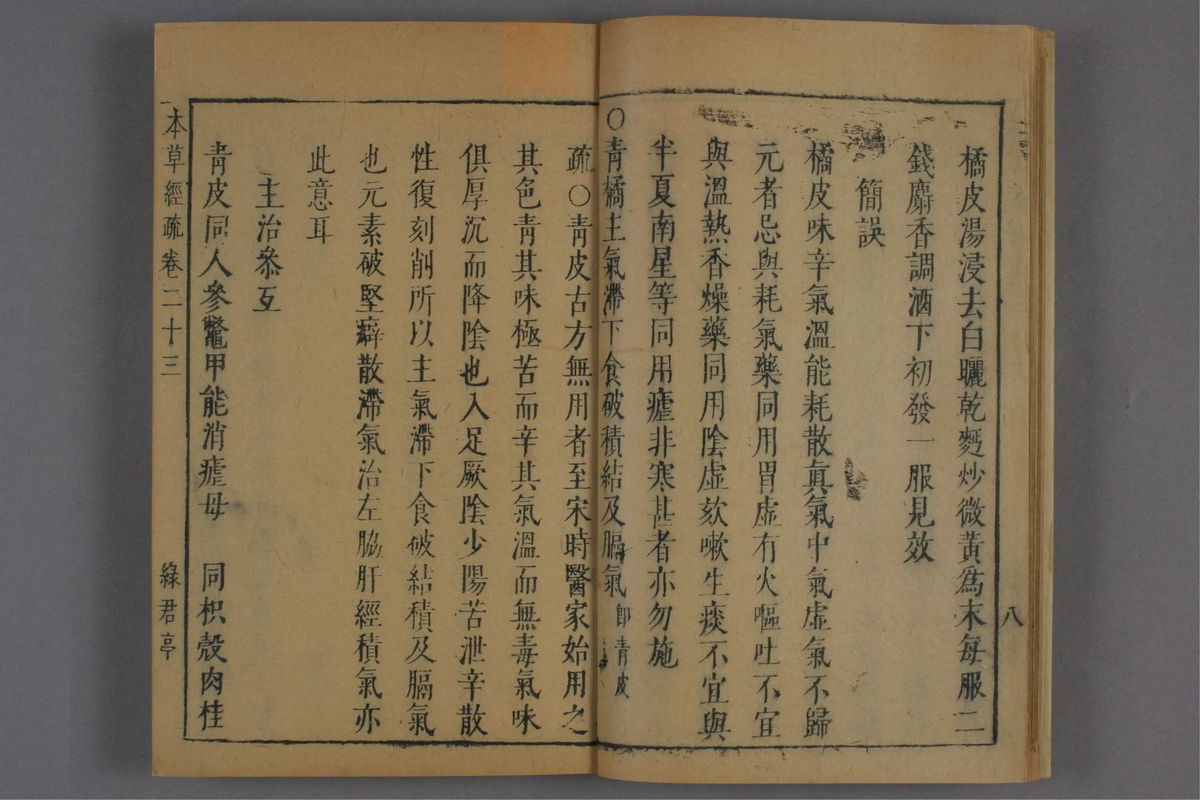 八
橘皮湯浸去白曬乾麪炒微黃為末每服二
錢麝香調酒下初發一服見效
簡誤
橘皮味辛氣溫能耗散眞氣中氣虛氣不歸
元者忌與耗氣藥同用胃虛有火嘔吐不宜
與溫熱香燥藥同用陰虛欬嗽生痰不宜與
半夏南星等同用瘧非寒甚者亦勿施
〇青橘主氣滯下食破積結及膈氣即青皮
疏〇青皮古方無用者至宋時醫家始用之
其色青其味極苦而辛其氣溫而無毒氣味
俱厚沉而降陰也入足厥陰少陽苦泄辛散
性復刻削所以主氣滯下食破結積及膈氣
也元素破堅癖散滯氣治左脇肝經積氣亦
此意耳
主治參互
青皮同人參鼈甲能消瘧母 同枳殼肉桂
本草經疏 卷二十三 綠君亭